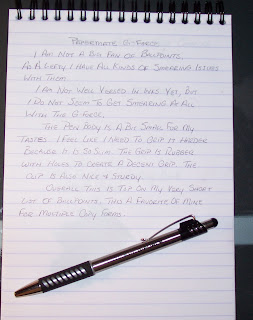 Papermate G-Force
I Am Not A Big Fan Of Ballpoints.
As A Lefty I Have All Kinds Of Smearing Issues
With Them.
I Am Not Well Versed In Inks Yet, But
I Do Not Seem To Get Smearing At All
With The G-Force.
The Pen Body Is A Bit Small For My
Tastes. I Feel Like I Need To Grip It Harder
Because It Is So Slim. The Grip Is Rubber
With Holes To Create A Decent Grip. The
Clip Is Also Nice & Sturdy.
Overall This Is Tip On My Very Short
List Of Ballpoints. This A Favorite Of Mine
For Multiple Copy Forms.